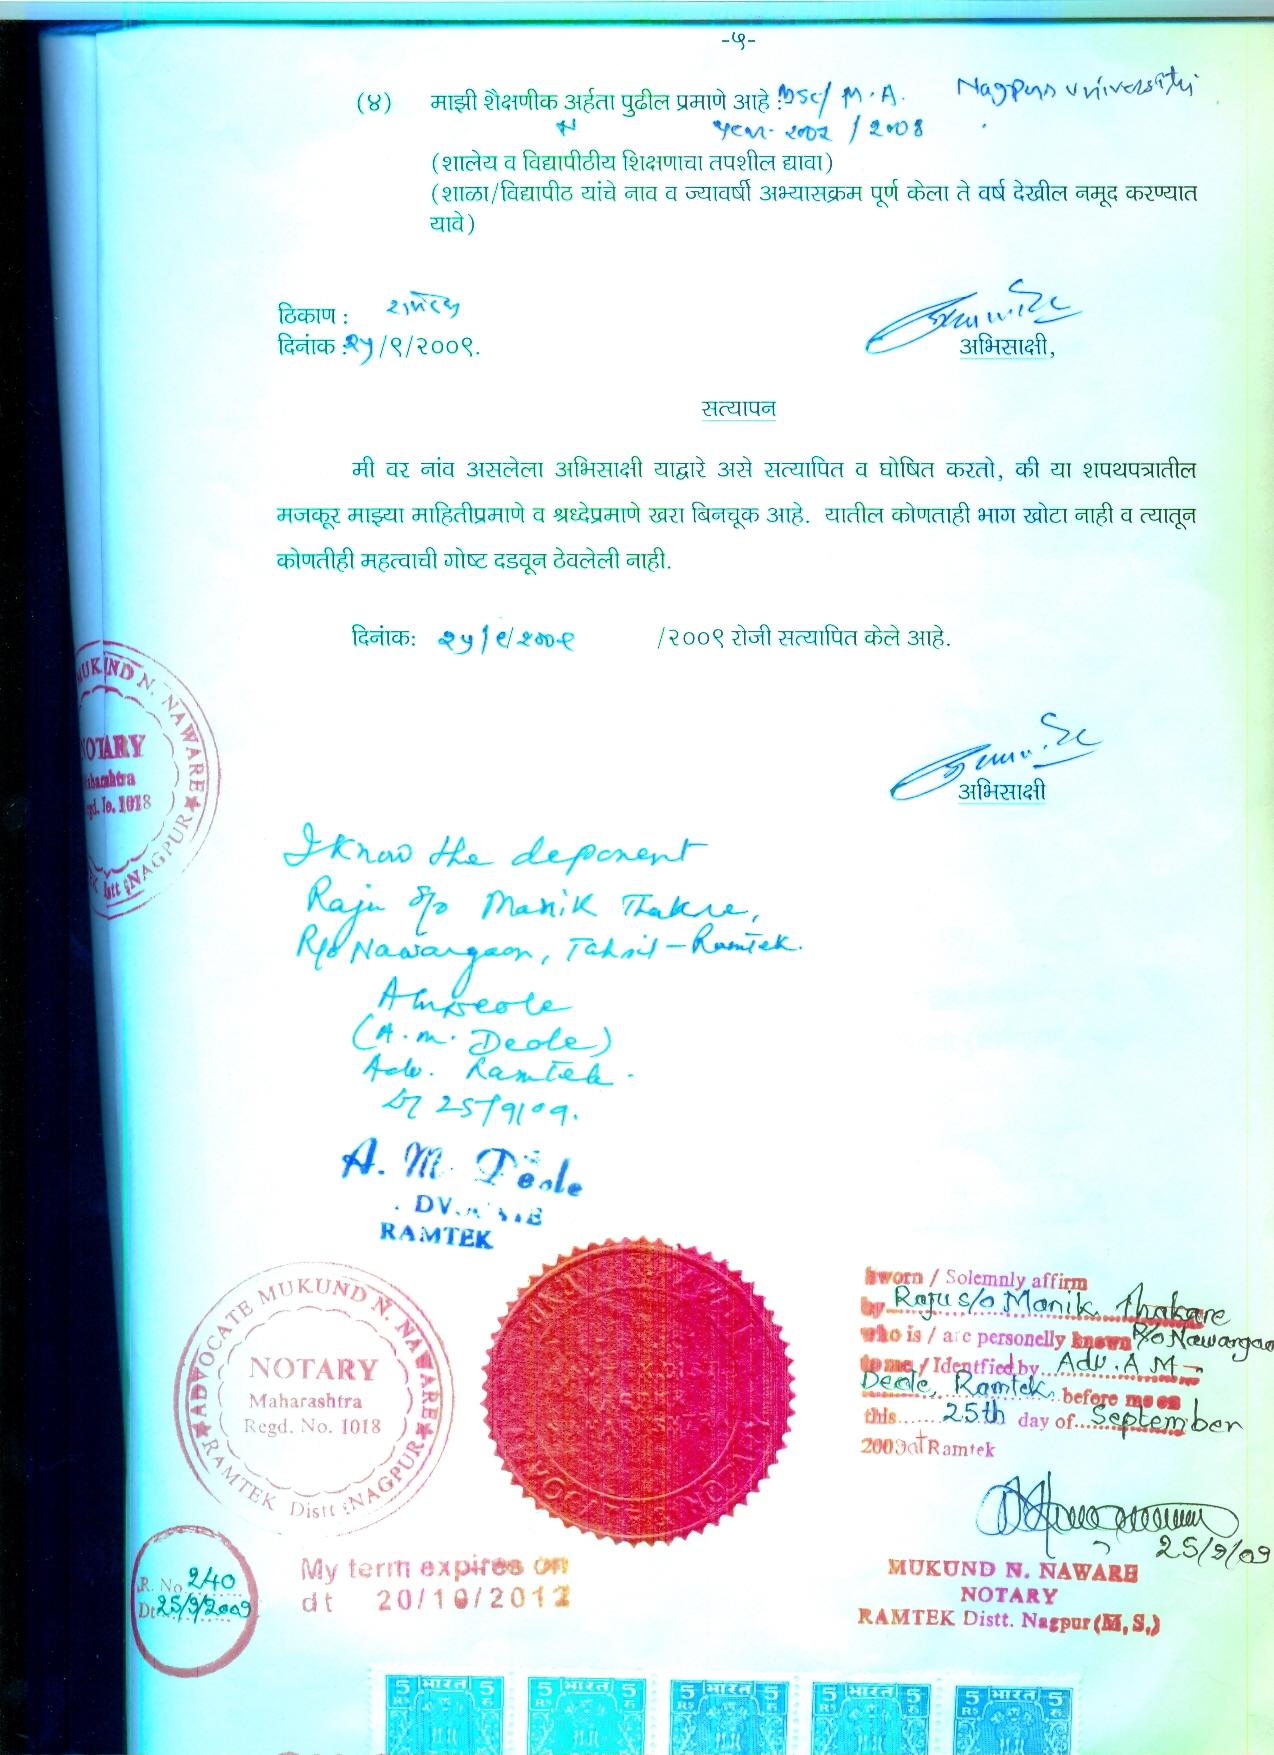 -५-
(४) माझी शैक्षणीक अर्हता पुढील प्रमाणे आहे : Bsc/ M.A. Nagpur University
year- 2002 / 2008
(शालेय व विद्यापीठीय शिक्षणाचा तपशील द्यावा)
(शाळा/विद्यापीठ यांचे नाव व ज्यावर्षी अभ्यासक्रम पूर्ण केला ते वर्ष देखील नमूद करण्यात
यावे)
ठिकाण : रामटेक
दिनांक :२५/९/२००९.
अभिसाक्षी,
सत्यापन
मी वर नांव असलेला अभिसाक्षी याद्वारे असे सत्यापित व घोषित करतो, की या शपथपत्रातील
मजकूर माझ्या माहितीप्रमाणे व श्रध्देप्रमाणे खरा बिनचूक आहे. यातील कोणताही भाग खोटा नाही व त्यातून
कोणतीही महत्वाची गोष्ट दडवून ठेवलेली नाही.
दिनांक: २५/९/२००९ /२००९ रोजी सत्यापित केले आहे.
MUKUND N. NAWARE
NOTARY
Maharashtra
Regd. No. 1018
RAMTEK Distt :NAGPUR
अभिसाक्षी
I know the deponent
Raju S/o Manik Thakre,
R/o Nawargaon, Tahsil - Ramtek.
(A.M. Deole)
Adv. Ramtek.
Dt 25/9/09.
A. M. Deole
ADVOCATE
RAMTEK
ADVOCATE MUKUND N. NAWARE
NOTARY
Maharashtra
Regd. No. 1018
RAMTEK Distt :NAGPUR
NOTARY
Sworn / Solemnly affirm
by Raju S/o Manik Thakare
who is / are personelly known R/o Nawargaon
to me / Identfied by Adv. A.M-
Deole, Ramtek before me on
this 25th day of September
2009 at Ramtek
25/9/09
MUKUND N. NAWARE
NOTARY
RAMTEK Distt. Nagpur (M.S.)
R. No. 240
Dt 25/9/2009
My term expires on
dt 20/10/2012
5 भारत 5
Rs रु.
5 भारत 5
Rs रु.
5 भारत 5
Rs रु.
5 भारत 5
Rs रु.
5 भारत 5
Rs रु.